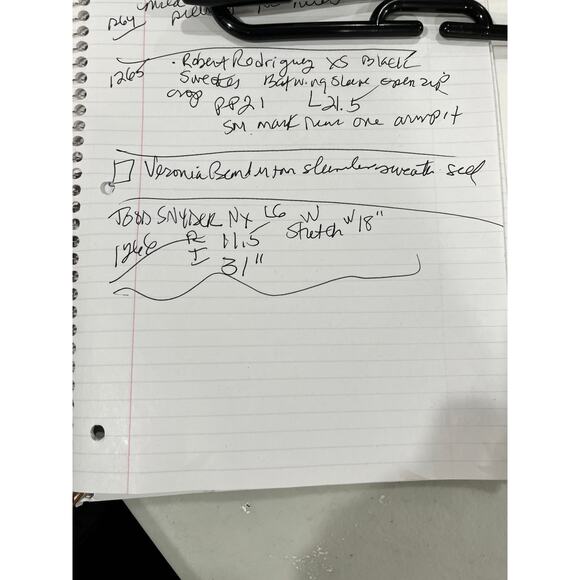 1264
1265 · Robert Rodriguez XS Black
Sweater Batwing Sleeve open zip
crop PP21 L 21.5
Sm. mark near one armpit
Veronia Beard sweater
TODD SNYDER NY LG W
Stretch W 18"
1266 R 11.5
I 31"